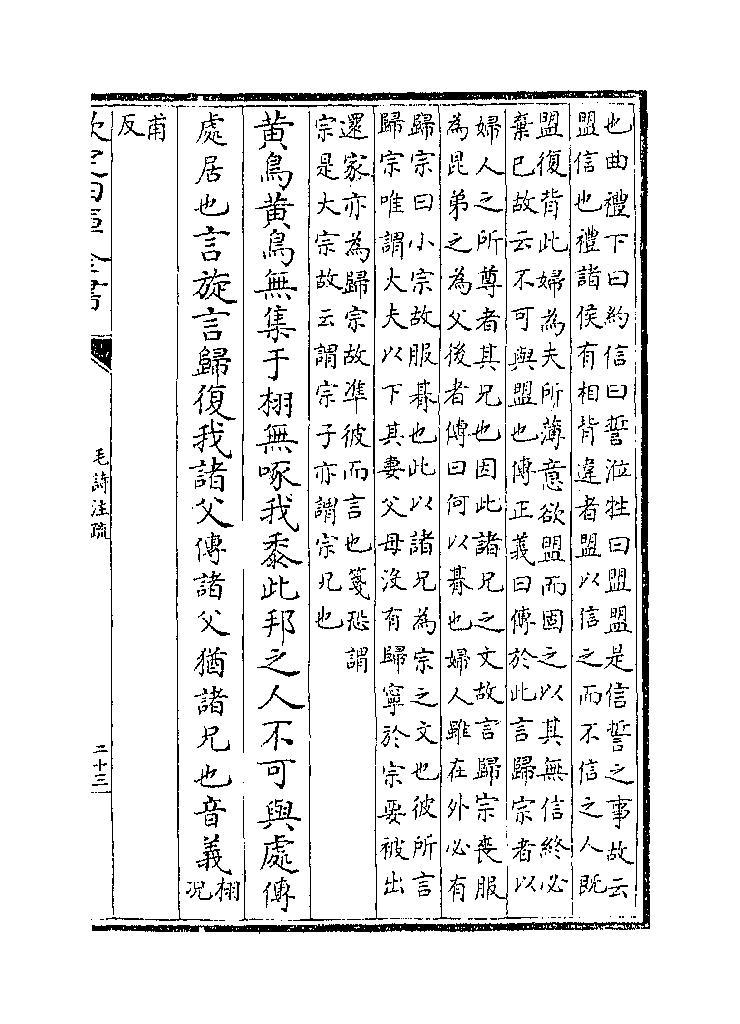 也曲禮下曰約信曰誓涖牲曰盟盟是信誓之事故云
盟信也禮諸侯有相背違者盟以信之而不信之人既
盟復背此婦為夫所薄意欲盟而固之以其無信終必
棄已故云不可與盟也傳正義曰傳於此言歸宗者以
婦人之所尊者其兄也因此諸兄之文故言歸宗喪服
為昆弟之為父後者傳曰何以朞也婦人雖在外必有
歸宗曰小宗故服朞也此以諸兄為宗之文也彼所言
歸宗唯謂大夫以下其妻父母沒有歸寧於宗要被出
還家亦為歸宗故準彼而言也箋恐謂
宗是大宗故云謂宗子亦謂宗兄也
黄鳥黄鳥無集于栩無啄我黍此邦之人不可與處傳
處居也言旋言歸復我諸父傳諸父猶諸兄也音義栩
况
甫
反
欽定四庫全書
毛詩注疏
二十三